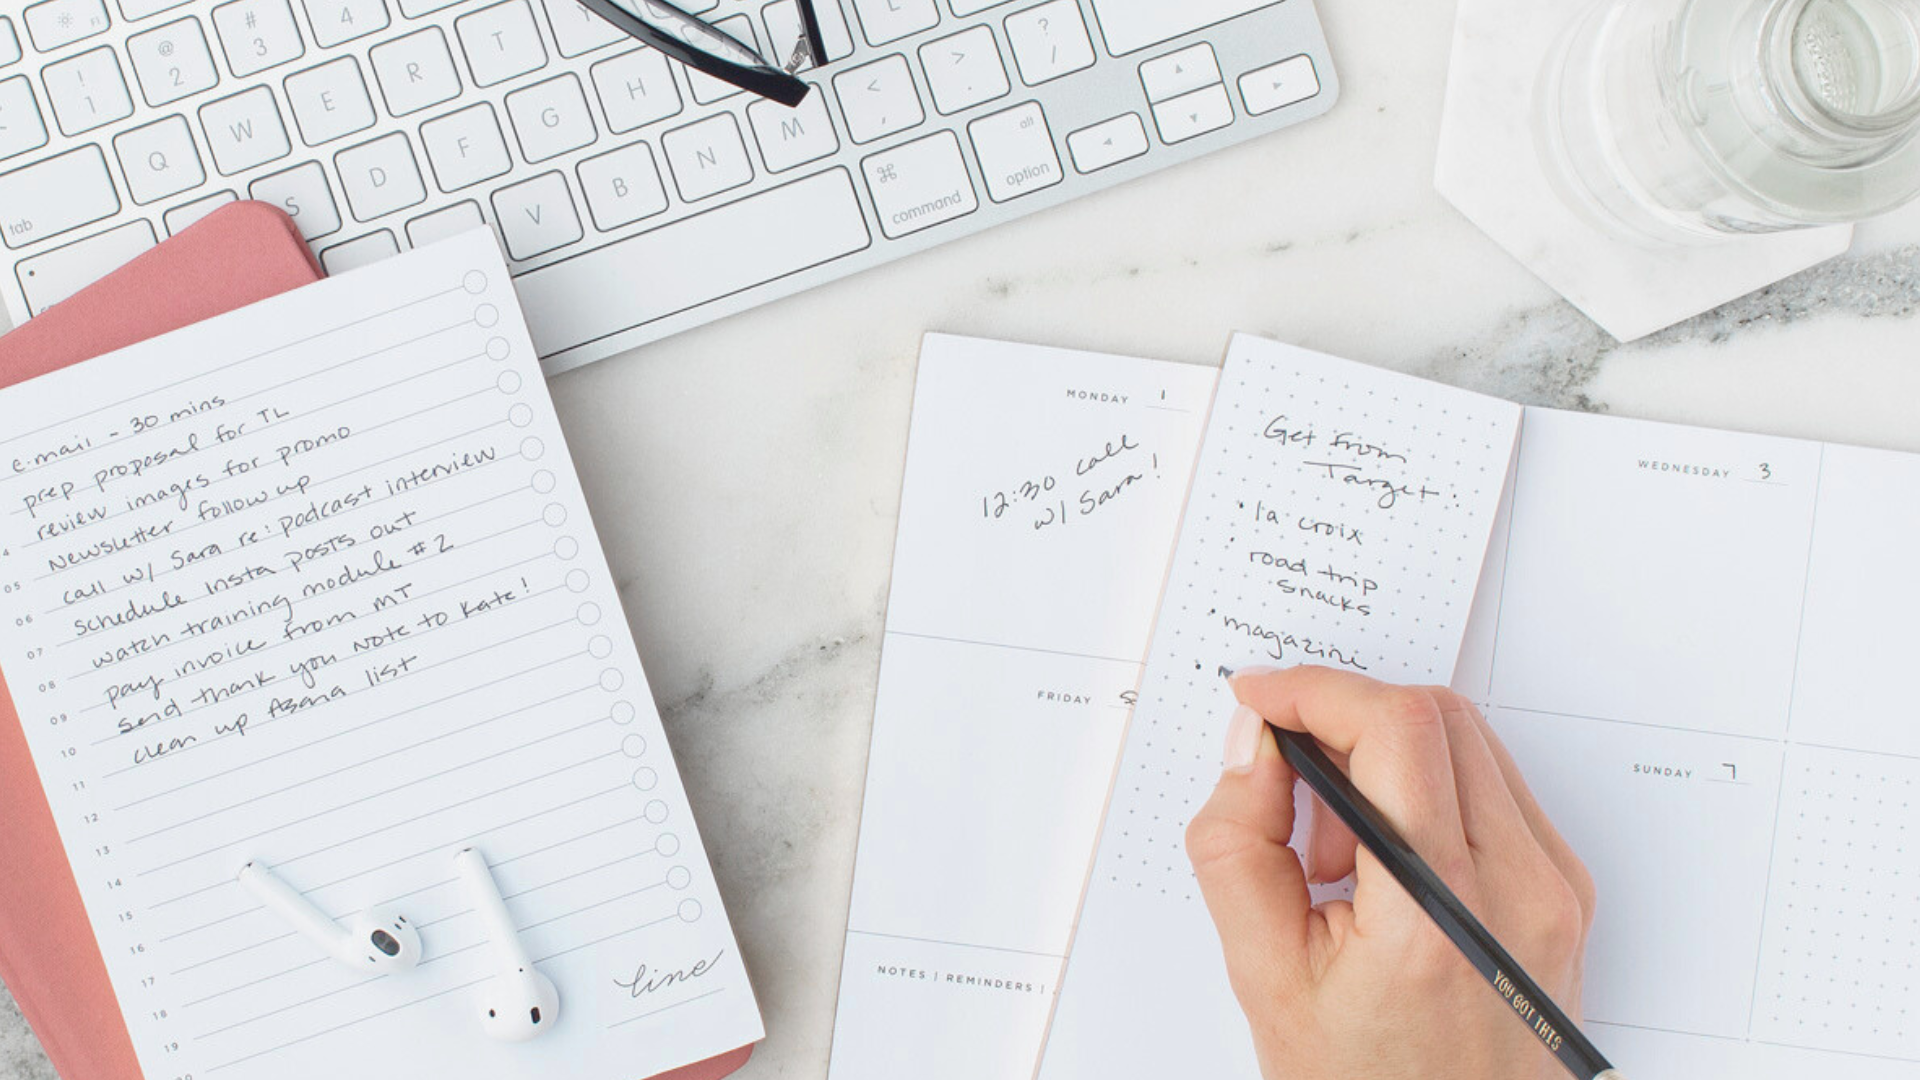 ! 1
@ 2
# 3
4
Q W E R T
S D F G H
V B N M < , > . ? /
tab
⌘ command
alt option
e.mail - 30 mins
prep proposal for TL
review images for promo
Newsletter follow up
call w/ Sara re: podcast interview
schedule Insta posts out
watch training module #2
pay invoice from MT
send thank you Note to Kate!
clean up Asana list
4
05
06
07
08
09
10
11
12
13
14
15
16
17
18
19
line
MONDAY 1
12:30 call
w/ Sara!
FRIDAY
NOTES | REMINDERS |
Get from
Target:
• la croix
• road trip
snacks
• magazine
•
WEDNESDAY 3
SUNDAY 7
YOU GOT THIS